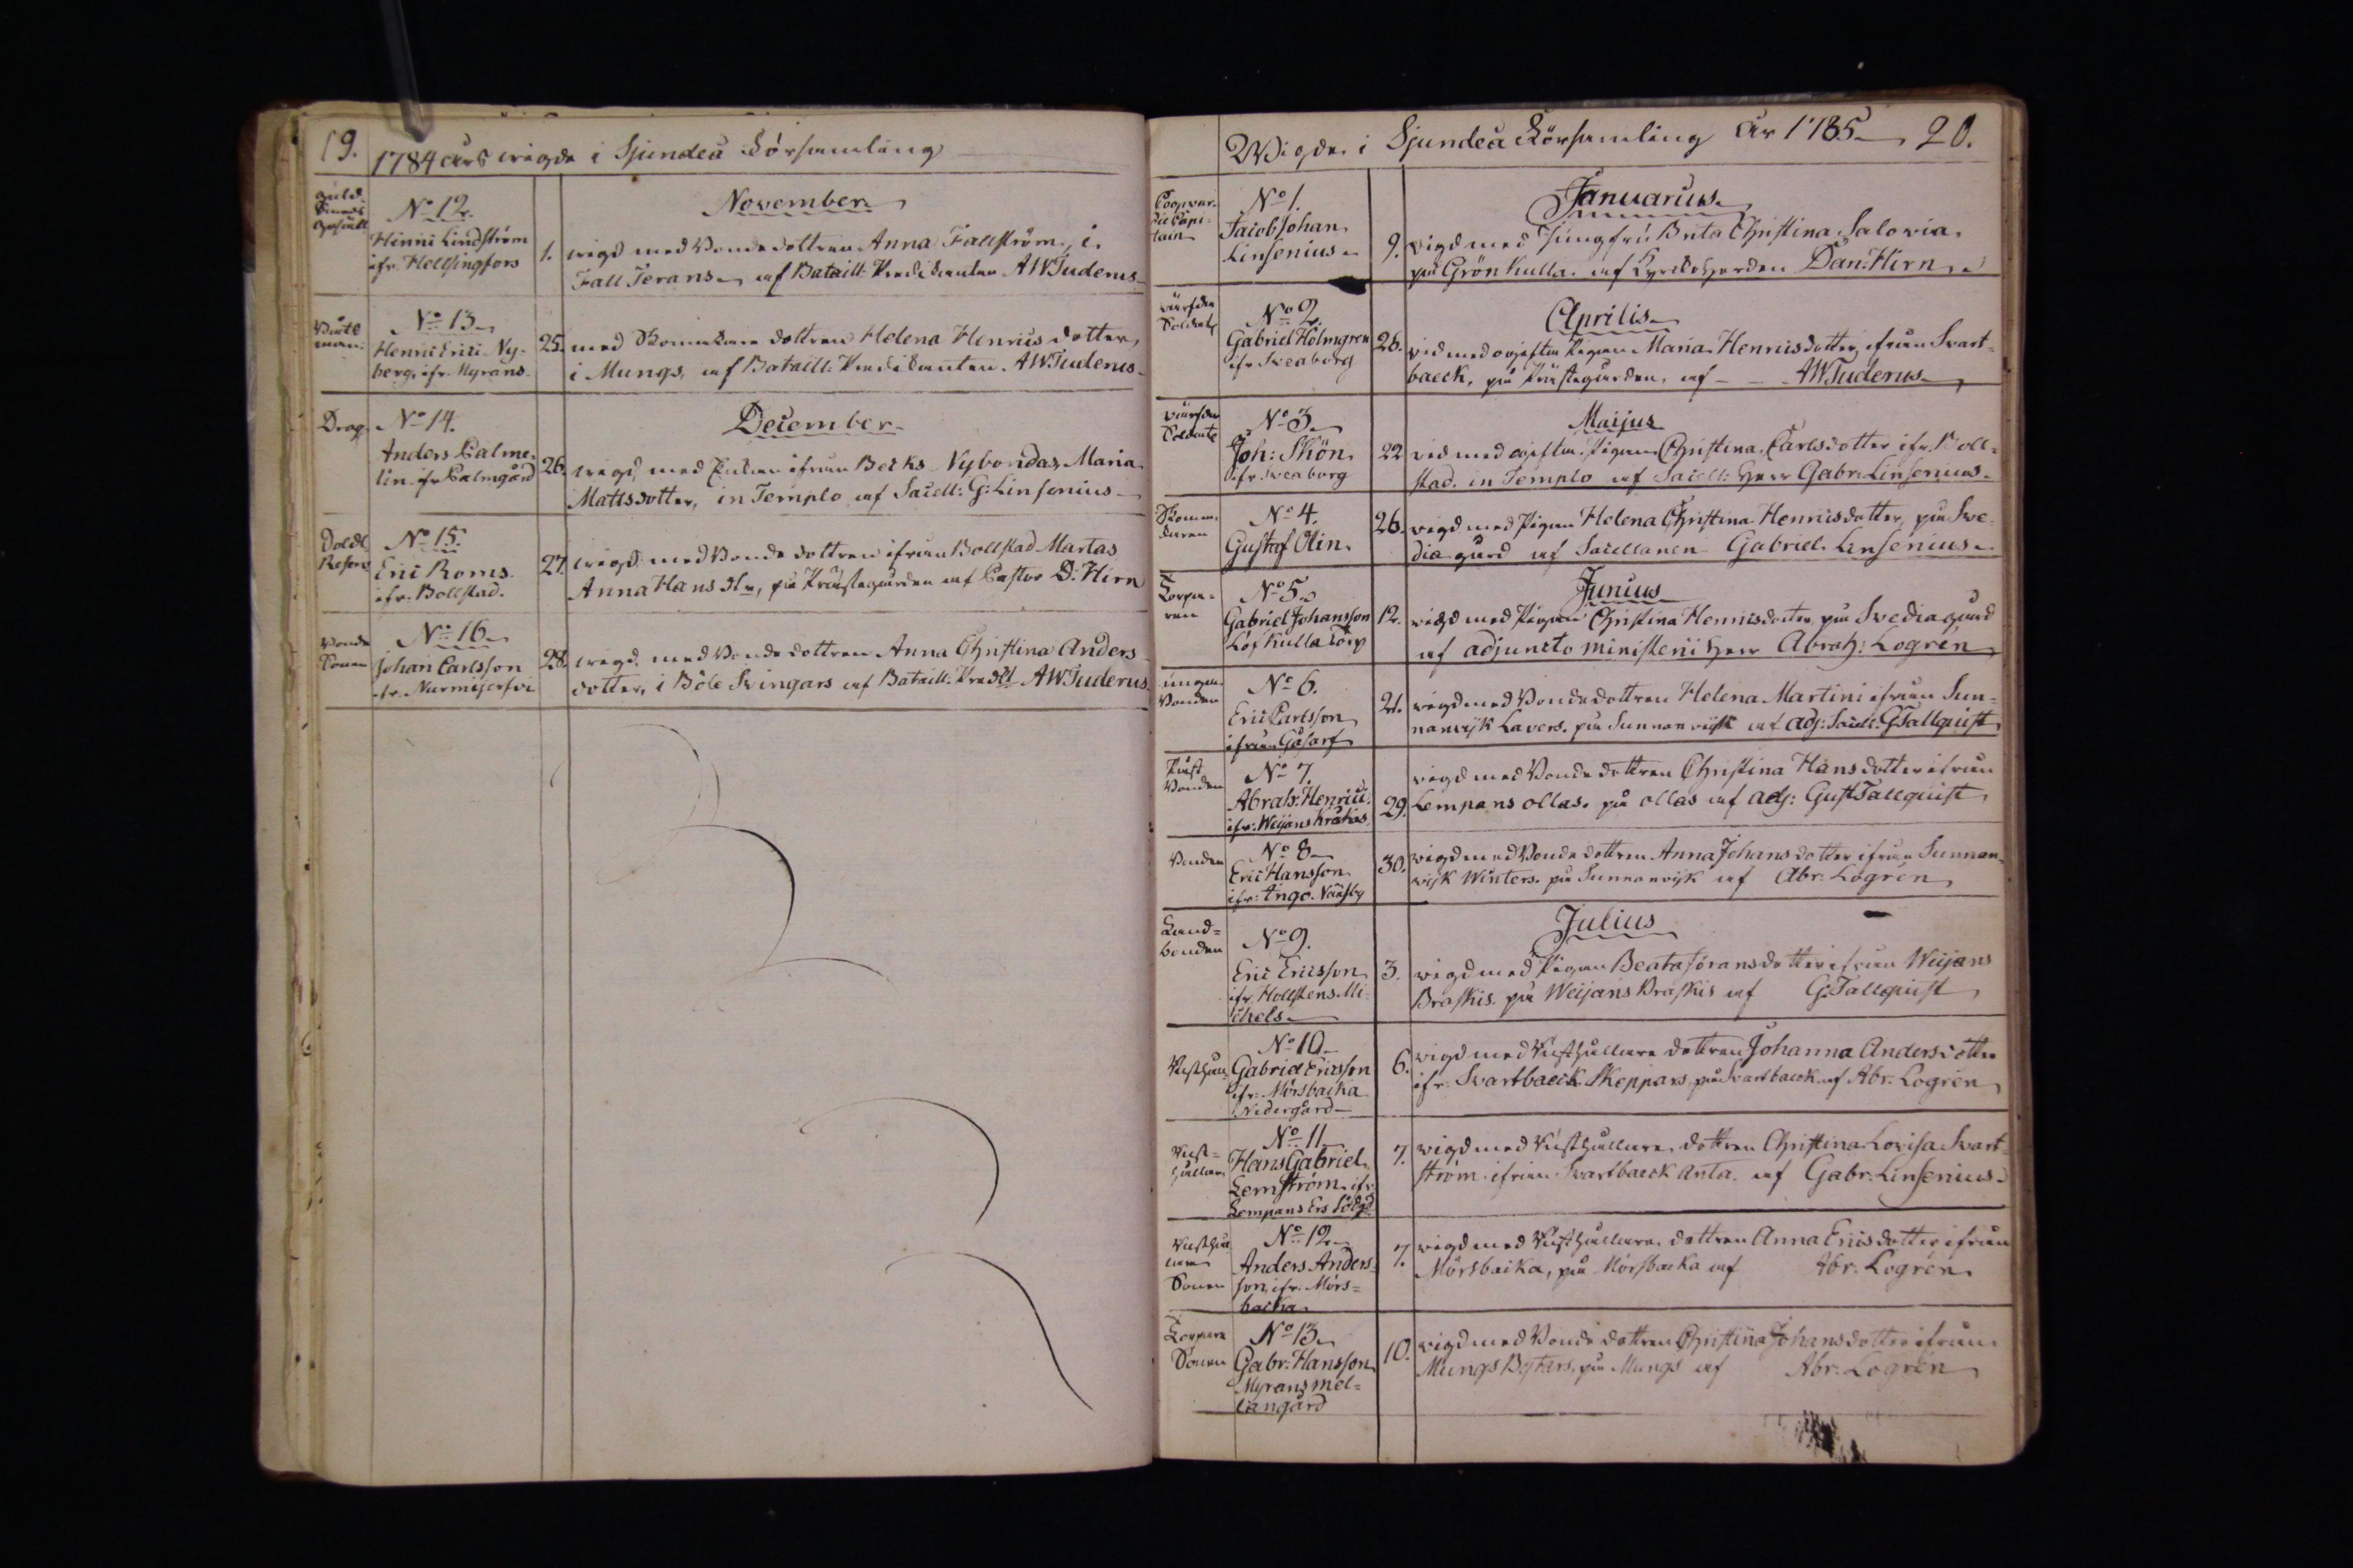 19.
1784 års wigde i Sjundeå Församling
Guld-
Smeds
Gesäll
No 12.
Hinric Lindström
ifr. Hellsingfors
November
1. wigd med Bondedottren Anna Fallström, i
Fall Terans af Bataill: Predikanten AWTuderus
No 13
Henric Erici Ny-
berg, ifr. Myrans
25. med Skomakare dottren Helena Henricsdotter,
i Mungs, af Bataill: Predikanten AWTuderus
Drag.
No 14.
Anders Palme-
lin ifr Palmgård
December
26. wigd, med Enkan ifrån Becks Nybondas, Maria
Mattsdotter, in Templo af Sacell: G: Linsenius
No 15.
Eric Roms
ifr. Bollstad.
27. wigd med Bonde dottren ifrån Bollstad Martas
Anna Hans dtr, på Prästegården af Pastor D: Hirn
Bonde
Sonen
No 16
Johan Carlsson
ifr. Nurmijerfvi
28. wigd. med Bonde dottren Anna Christina Anders
dotter, i Böle Svingars af Bataill: Predik AWTuderus
Wigde i Sjundeå Församling År 1785 20.
Coopvar-
die Capi-
tain
No 1.
Jacob Johan
Linsenius
Januarius
9. vigd med Jungfru Brita Christina Salovia
på Grönkulla af Kyrkoherden Dan: Hirn
Soldat
No 2.
Gabriel Holmgren
ifr Sveaborg
Aprilis
26. vid med ogifta Pigan Maria Henricsdotter, ifrån Svart-
baeck, på Prästegården, af AWTuderus
Soldate
No 3
Joh: Skön
ifr Sveaborg
Maijus
22 vid med ogifta Pigan Christina Carlsdotter ifr. Boll-
stad. in Templo af Sacell: Herr Gabr. Linsenius
No 4.
Gustaf Olin
26. vigd med Pigan Helena Christina Henricsdotter, på Sve-
dia gård af Sacellanen Gabriel Linsenius
No 5
Gabriel Johansson
Löfkulla Torp
Junius
12. vigd med Pigan Christina Henricsdotter på Svedia gård
af adjuncto ministerii Herr Abrah: Logrén
unga
Bonden
No 6.
Eric Carlsson
ifrån Gåsarf
21. vigd med Bondedottren Helena Martini ifrån Sun-
nanvijk Lavers. på Sunnanvijk af Adj: Sacell: G Tallquist
Bonden
No 7.
Abrah: Henrici
ifr. Weijans Kråkas
29. vigd med Bonde dottren Christina Hansdotter ifrån
Lempans ollas. på ollas af Adj: Gust Tallquist
Bonden
No 8
Eric Hansson
ifr: Ingo. Vänsby
30. vigd med Bonde dottren Anna Johansdotter ifrån Sunnan-
vijk Winters. på Sunnanvijk af Abr. Logrén
Land-
bonden
No 9.
Eric Ericsson
ifr. Hollstens Mi-
chels
Julius
3. vigd med Pigan Beata Göransdotter ifrån Weijans
Braskis. på Weijans Braskis af G: Tallquist
No 10
Gabriel Ericsson
ifr: Mörsbacka
Nedergård
6. vigd med Rusthållare dottren Johanna Andersdotter
ifr: Svartbaeck Skeppars, på Svartbaeck af Abr. Logrén
Rust-
hållaren
No 11
Hans Gabriel
Lemström ifr
Lempans Ers Sölgd
7. vigd med Rusthållare, dottren Christina Lovisa Svart-
ström ifrån Svartbaeck Anta. af Gabr. Linsenius
Sonen
No 12
Anders Anders-
son, ifr. Mörs-
backa
7. vigd med Rusthållare, dottren Anna Ericsdotter ifrån
Mörsbacka, på Mörsbacka af Abr. Logrén
Sonen
No 13
Gabr: Hansson
Myrans mel-
langård
10. vigd med Bonde dottren Christina Johansdotter ifrån
Mungs Bytars, på Mungs af Abr. Logrén